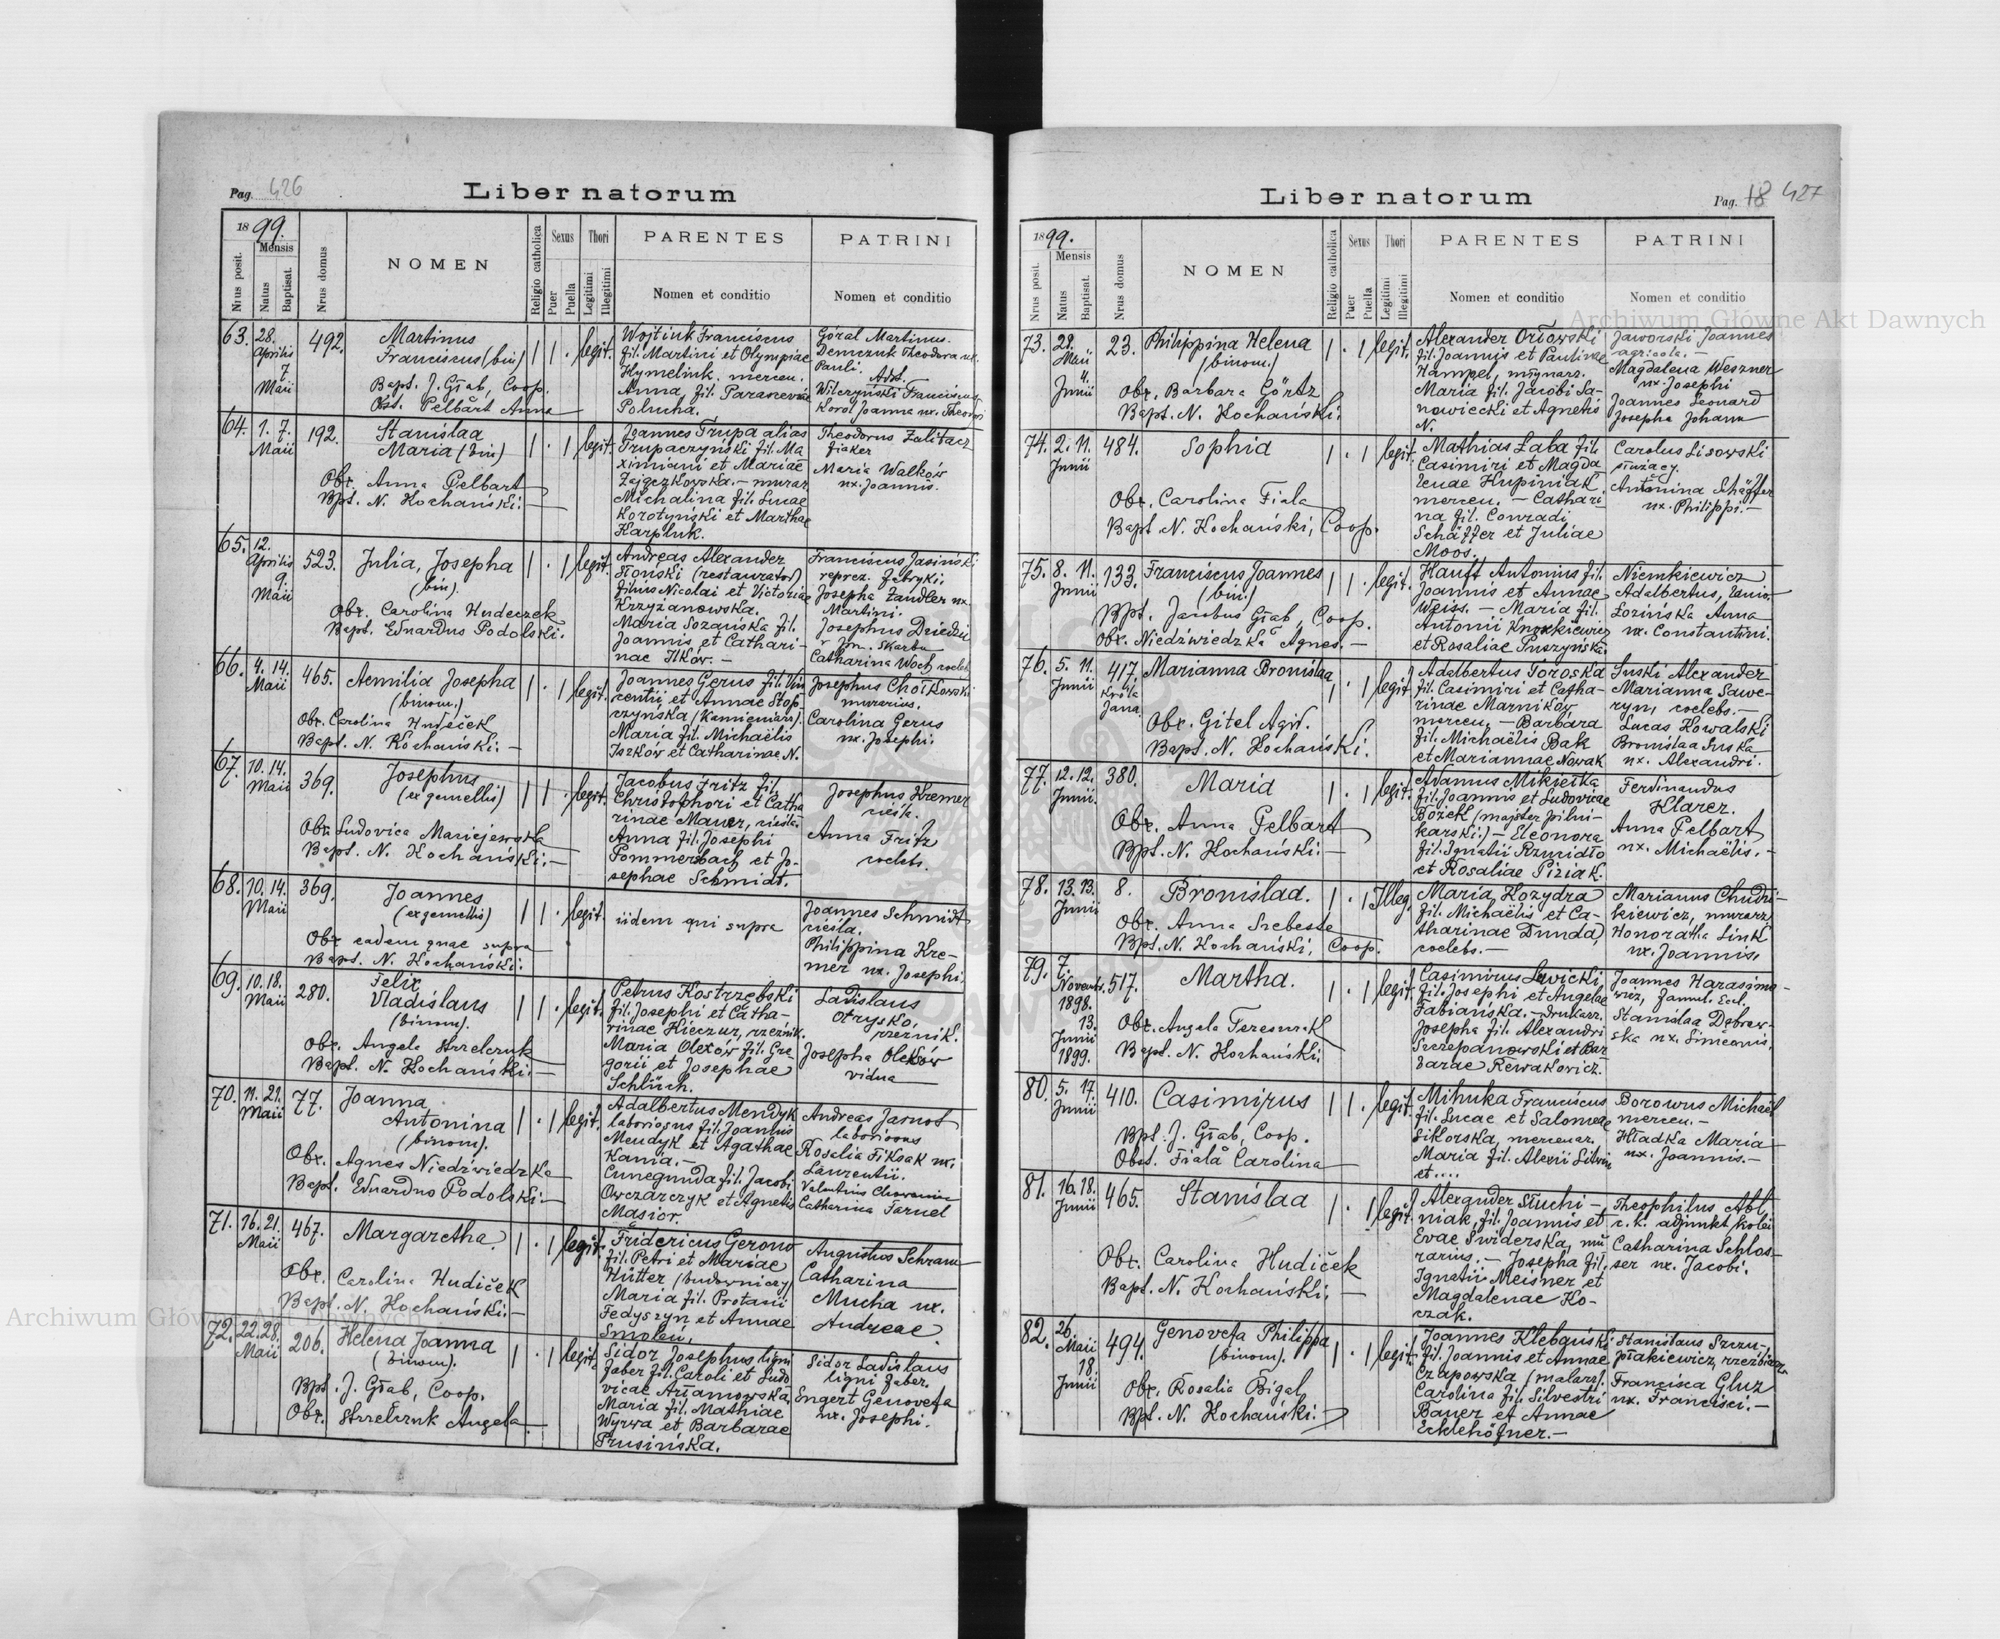 Pag. 426
Liber natorum
1899.
Nrus posit.
Mensis
Natus
Baptisat.
Nrus domus
NOMEN
Religio catholica
Sexus
Puer
Puella
Thori
Legitimi
Illegitimi
PARENTES
Nomen et conditio
PATRINI
Nomen et conditio
63.
28.
Aprilis
7
Maii
492.
Martinus
Franciscus (bin)
Bapt. J. Głab, Coop.
Obst. Pelbart Anna
legit.
Wojtiuk Franciscus
fil. Martini et Olympiae
Hymeliuk, mercen.
Anna, fil. Parasceviae
Polucha.
Góral Martinus.
Demczuk Theodora ux.
Pauli.
Adst.
Wilczyński Franciscus
Korol Joanna ux. Theodori
64.
1. 7.
Maii
192.
Stanislaa
Maria (bin)
Obx. Anna Pelbart
Bpt. N. Kochański.
legit.
Joannes Trupa alias
Trupaczyński fil. Ma
ximiani et Mariae
Zajączkowska. murar
Michalina fil. Lucae
Korotyński et Marthae
Karpluk.
Theodorus Zalitacz
fiaker
Maria Walków
ux. Joannis.
65.
12.
Aprilis
9.
Maii
523.
Julia, Josepha
(bin).
Obx. Carolina Hudeczek
Bapt. Eduardus Podolski.
legit.
Andreas Alexander
Słoński (restaurator)
filius Nicolai et Victoriae
Krzyżanowska.
Maria Sozańska fil.
Joannis et Cathari-
nae Ilków. -
Franciscus Jasiński
reprez. fabryki.
Josepha Zandler ux.
Martini.
Josephus Dziedzic
Catharina Woch
66.
4. 14.
Maii
465.
Aemilia Josepha
(binom.)
Obx. Carolina Hudeček
Bapt. N. Kochański. -
legit
Joannes Gerus fil. Vin
centii et Annae Stop-
czyńska (Kamieniarz).
Maria fil. Michaëlis
Iszków et Catharinae N.
Josephus Chołkowski
murarius.
Carolina Gerus
ux. Josephi.
67.
10. 14.
Maii
369.
Josephus
(ex gemellis)
Obx. Ludovica Maciejewska
Bapt. N. Kochański. -
legit.
Jacobus Fritz fil.
Christophori et Catha
rinae Mauer, cieśla.
Anna fil. Josephi
Pommersbach et Jo-
sephae Schmidt.
Josephus Kremer
cieśla.
Anna Fritz
coelebs.
68.
10. 14.
Maii
369.
Joannes
(ex gemellis)
Obx eadem quae supra
Bapt. N. Kochański.
legit.
iidem qui supra
Joannes Schmidt
cieśla.
Philippina Kre-
mer ux. Josephi.
69.
10. 18.
Maii
280.
Felix
Vladislaus
(binom).
Obx. Angela Strzelczuk
Bapt. N. Kochański. -
legit.
Petrus Kostrzebski
fil. Josephi et Catha-
rinae Kieczur, rzeźnik.
Maria Olexów fil. Gre
gorii et Josephae
Schlüch.
Ladislaus
Otrysko,
rzeźnik.
Josepha Oleków
vidua
70.
11. 21.
Maii
77.
Joanna
Antonina
(binom).
Obx. Agnes Niedźwiedzka
Bapt. Eduardus Podolski -
legit.
Adalbertus Mendyk
laboriosus fil. Joannis
Mendyk et Agathae
Kania. -
Cunegunda fil. Jacobi
Owczarczyk et Agnetis
Masior.
Andreas Jarnot
laboriosus
Rosalia Fiksak ux.
Laurentii.
Valentinus Chowaniec
Catharina Tarnel
71.
16. 21.
Maii
467.
Margaretha.
Obx. Carolina Hudiček
Bapt. N. Kochański. -
legit.
Fridericus Gerono
fil. Petri et Mariae
Hütter (budowniczy)
Maria fil. Protasii
Fedyszyn et Annae
Smoleń.
Augustus Schram
Catharina
Mucha ux.
Andreae.
72.
22. 28.
Maii
206.
Helena Joanna
(binom).
Bpt. J. Głab, Coop.
Obx. Strzelczuk Angela
legit.
Sidor Josephus ligni
faber fil. Caroli et Ludo
vicae Artamowska,
Maria fil. Mathiae
Wyrwa et Barbarae
Prusińska.
Sidor Ladislaus
ligni faber.
Engert Genovefa
ux. Josephi.
Liber natorum
Pag. 18 427
1899.
Nrus posit.
Mensis
Natus
Baptisat.
Nrus domus
NOMEN
Religio catholica
Sexus
Puer
Puella
Thori
Legitimi
Illegitimi
PARENTES
Nomen et conditio
PATRINI
Nomen et conditio
73.
28.
Maii
4.
Junii
23.
Philippina Helena
(binom.)
Obx. Barbara Görtz
Bapt. N. Kochański.
legit.
Alexander Orłowski
fil. Joannis et Paulinae
Hampel, młynarz.
Maria fil. Jacobi Sa-
nowiecki et Agnetis
N.
Jaworski Joannes
agricola. -
Magdalena Weszner
ux. Josephi
Joannes Leonard
Josepha Johann
74.
2. 11.
Junii
484.
Sophia
Obx. Carolina Fiala
Bapt N. Kochański, Coop.
legit.
Mathias Łaba fil.
Casimiri et Magda
lenae Hupiniak
mercen. - Cathari-
na fil. Conradi
Schäffer et Juliae
Moos.
Carolus Lisowski
służący.
Antonina Schäffer
ux. Philippi. -
75.
8. 11.
Junii
133.
Franciscus Joannes
(bin.)
Bpt. Jacobus Głab, Coop.
Obx. Niedźwiedzka Agnes. -
legit.
Hauft Antonius fil.
Joannis et Annae
Weiss. - Maria fil.
Antonii Knoxkiewicz
et Rosaliae Puszyńska.
Niemkiewicz
Adalbertus,
Łozińska Anna
ux. Constantini.
76.
5. 11.
Junii
417.
Króla
Jana
Marianna Bronislaa
Obx. Gitel Agid.
Bapt. N. Kochański.
legit
Adalbertus Toroska
fil. Casimiri et Catha-
rinae Marników
mercen. - Barbara
fil. Michaëlis Bak
et Mariannae Nowak
Suski Alexander
Marianna Sawe-
ryn, coelebs. -
Lucas Kowalski
Bronislaa Suska
ux. Alexandri.
77.
12. 12.
Junii.
380.
Maria
Obx. Anna Pelbart
Bpt. N. Kochański. -
legit.
Adamus Mikietka
fil. Joannis et Ludovicae
Bożek (majster pilni-
karski.) - Eleonora
fil. Ignatii Rzmidło
et Rosaliae Piziak.
Ferdinandus
Klarez.
Anna Pelbart
ux. Michaëlis. -
78.
13. 13.
Junii
8.
Bronislaa.
Obx. Anna Srebeste
Bpt. N. Kochański, Coop.
Illeg.
Maria Kozydra
fil. Michaëlis et Ca-
tharinae Dunda,
coelebs. -
Marianus Chudzi-
kiewicz, murarz
Honoratha Link
ux. Joannis.
79.
7.
Novembr.
1898.
13.
Junii
1899.
517.
Martha.
Obx. Angela Teresniak
Bapt. N. Kochański.
legit.
Casimirus Lewicki
fil. Josephi et Angelae
Fabiańska. - drukarz.
Josepha fil. Alexandri
Szczepanowski et Bar
barae Rewakowicz.
Joannes Harasimo-
wicz, famul. Eccl.
Stanislaa Dąbrow-
ska ux. Simeonis.
80.
5. 17.
Junii
410.
Casimirus
Bpt. J. Głab, Coop.
Obst. Fiala Carolina
legit
Mihułka Franciscus
fil. Lucae et Salomeae
Sikorska, mercenar.
Maria fil. Alexii Litwin
et ....
Borowus Michaël
mercen. -
Hładka Maria
ux. Joannis. -
81.
16. 18.
Junii
465.
Stanislaa
Obx. Carolina Hudiček
Bapt. N. Kochański. -
legit.
Alexander Słuchi-
niak, fil. Joannis et
Evae Świderska, mu
rarius. - Josepha fil.
Ignatii Meisner et
Magdalenae Ko-
czak.
Theophilus Abl,
c. k. adjunkt kolei
Catharina Schlos-
ser ux. Jacobi.
82.
26.
Maii
18.
Junii
494.
Genovefa Philippa
(binom).
Obx. Rosalia Bigal
Bpt. N. Kochański.
legit.
Joannes Klebański
fil. Joannis et Annae
Czapowska (malarz).
Carolina fil. Silvestri
Bauer et Annae
Ecklehöfner. -
Stanislaus Szczu-
ptakiewicz, rzeźbiarz
Francisca Gluz
ux. Francisci. -
Archiwum Główne Akt Dawnych
Archiwum Główne Akt Dawnych